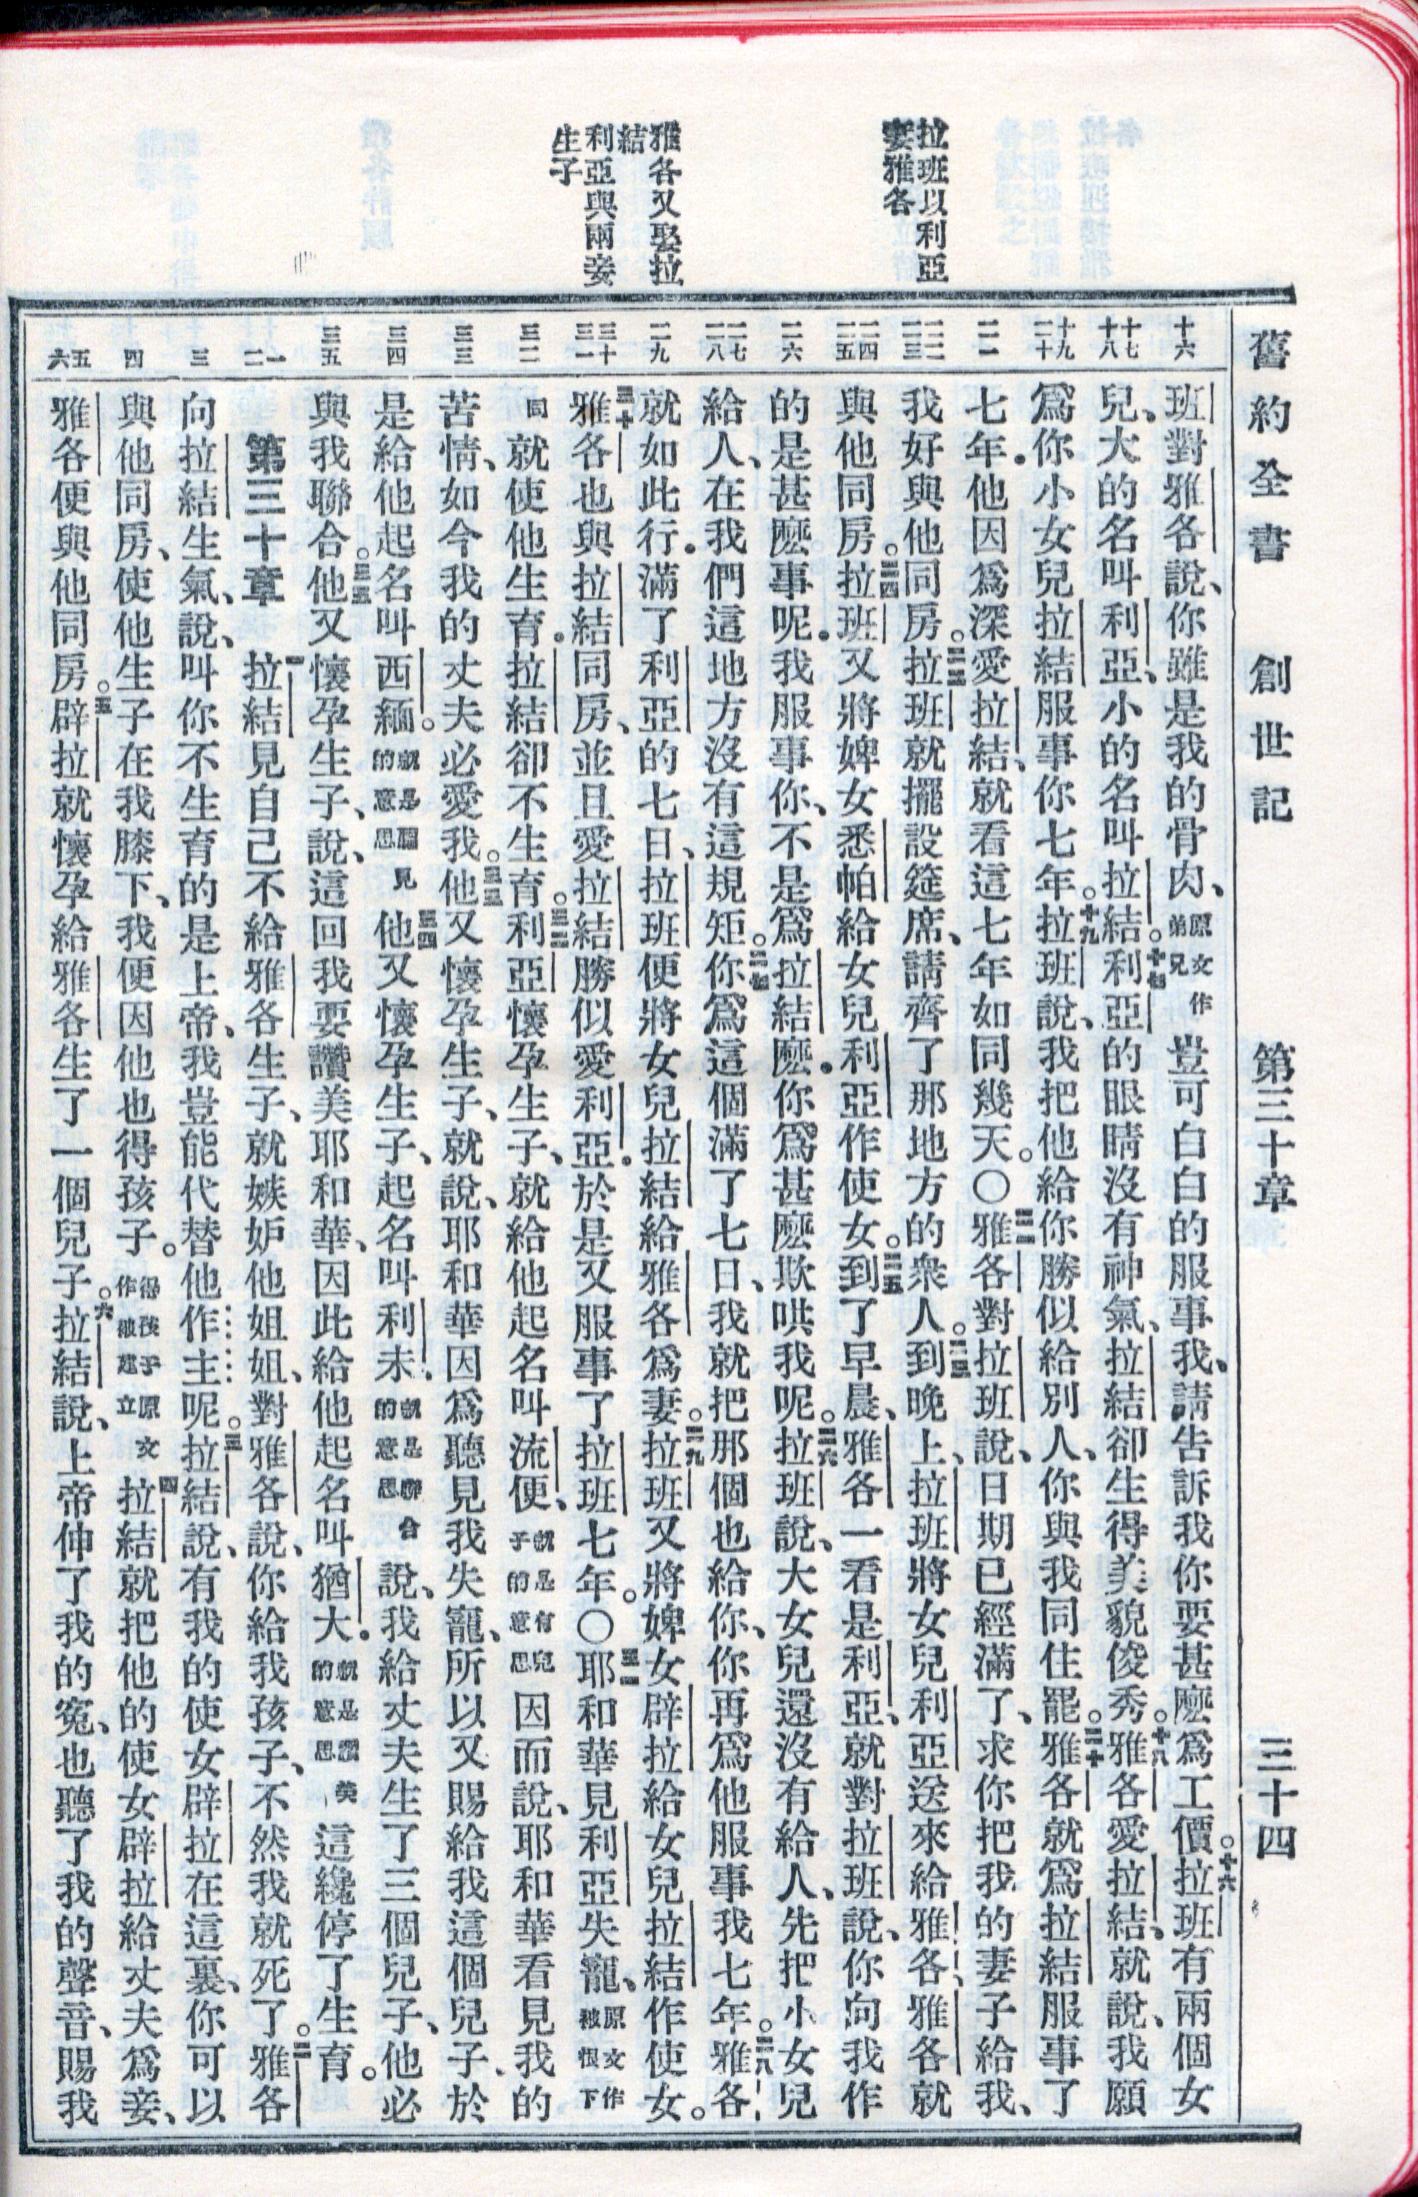 舊約全書 創世記 第三十章 三十四
拉班以利亞
妻雅各
雅各又娶拉
結
利亞與兩妾
生子
十六
十七 十八
十九 二十
二一
二二 二三
二四 二五
二六
二七 二八
二九
三十 三一
三二
三三
三四
三五
一 二
三
四
五 六
班對雅各說、你雖是我的骨肉、原文作弟兄豈可白白的服事我、請告訴我你要甚麼爲工價。十六拉班有兩個女
兒、大的名叫利亞、小的名叫拉結。十七利亞的眼睛沒有神氣、拉結卻生得美貌俊秀。十八雅各愛拉結、就說、我願
爲你小女兒拉結服事你七年。十九拉班說、我把他給你勝似給別人、你與我同住罷。二十雅各就爲拉結服事了
七年.他因爲深愛拉結、就看這七年如同幾天。〇二一雅各對拉班說、日期已經滿了、求你把我的妻子給我、
我好與他同房。二二拉班就擺設筵席、請齊了那地方的衆人。二三到晚上、拉班將女兒利亞送來給雅各、雅各就
與他同房。二四拉班又將婢女悉帕給女兒利亞作使女。二五到了早晨、雅各一看是利亞、就對拉班說、你向我作
的是甚麼事呢.我服事你、不是爲拉結麼.你爲甚麼欺哄我呢。二六拉班說、大女兒還沒有給人、先把小女兒
給人、在我們這地方沒有這規矩。二七你爲這個滿了七日、我就把那個也給你、你再爲他服事我七年。二八雅各
就如此行.滿了利亞的七日、拉班便將女兒拉結給雅各爲妻。二九拉班又將婢女辟拉給女兒拉結作使女。
三十雅各也與拉結同房、並且愛拉結勝似愛利亞.於是又服事了拉班七年。〇三一耶和華見利亞失寵、原文作被恨下
同就使他生育.拉結卻不生育。三二利亞懷孕生子、就給他起名叫流便、就是有兒子的意思因而說、耶和華看見我的
苦情、如今我的丈夫必愛我。三三他又懷孕生子、就說、耶和華因爲聽見我失寵、所以又賜給我這個兒子、於
是給他起名叫西緬。就是聽見的意思三四他又懷孕生子、起名叫利未.就是聯合的意思說、我給丈夫生了三個兒子、他必
與我聯合。三五他又懷孕生子、說、這回我要讚美耶和華、因此給他起名叫猶大.就是讚美的意思這纔停了生育。
第三十章 一拉結見自己不給雅各生子、就嫉妒他姐姐、對雅各說、你給我孩子、不然我就死了。二雅各
向拉結生氣、說、叫你不生育的是上帝、我豈能代替他作主呢。三拉結說、有我的使女辟拉在這裏、你可以
與他同房、使他生子在我膝下、我便因他也得孩子。得孩子原文作被建立四拉結就把他的使女辟拉給丈夫爲妾、
雅各便與他同房。五辟拉就懷孕給雅各生了一個兒子。六拉結說、上帝伸了我的寃、也聽了我的聲音、賜我